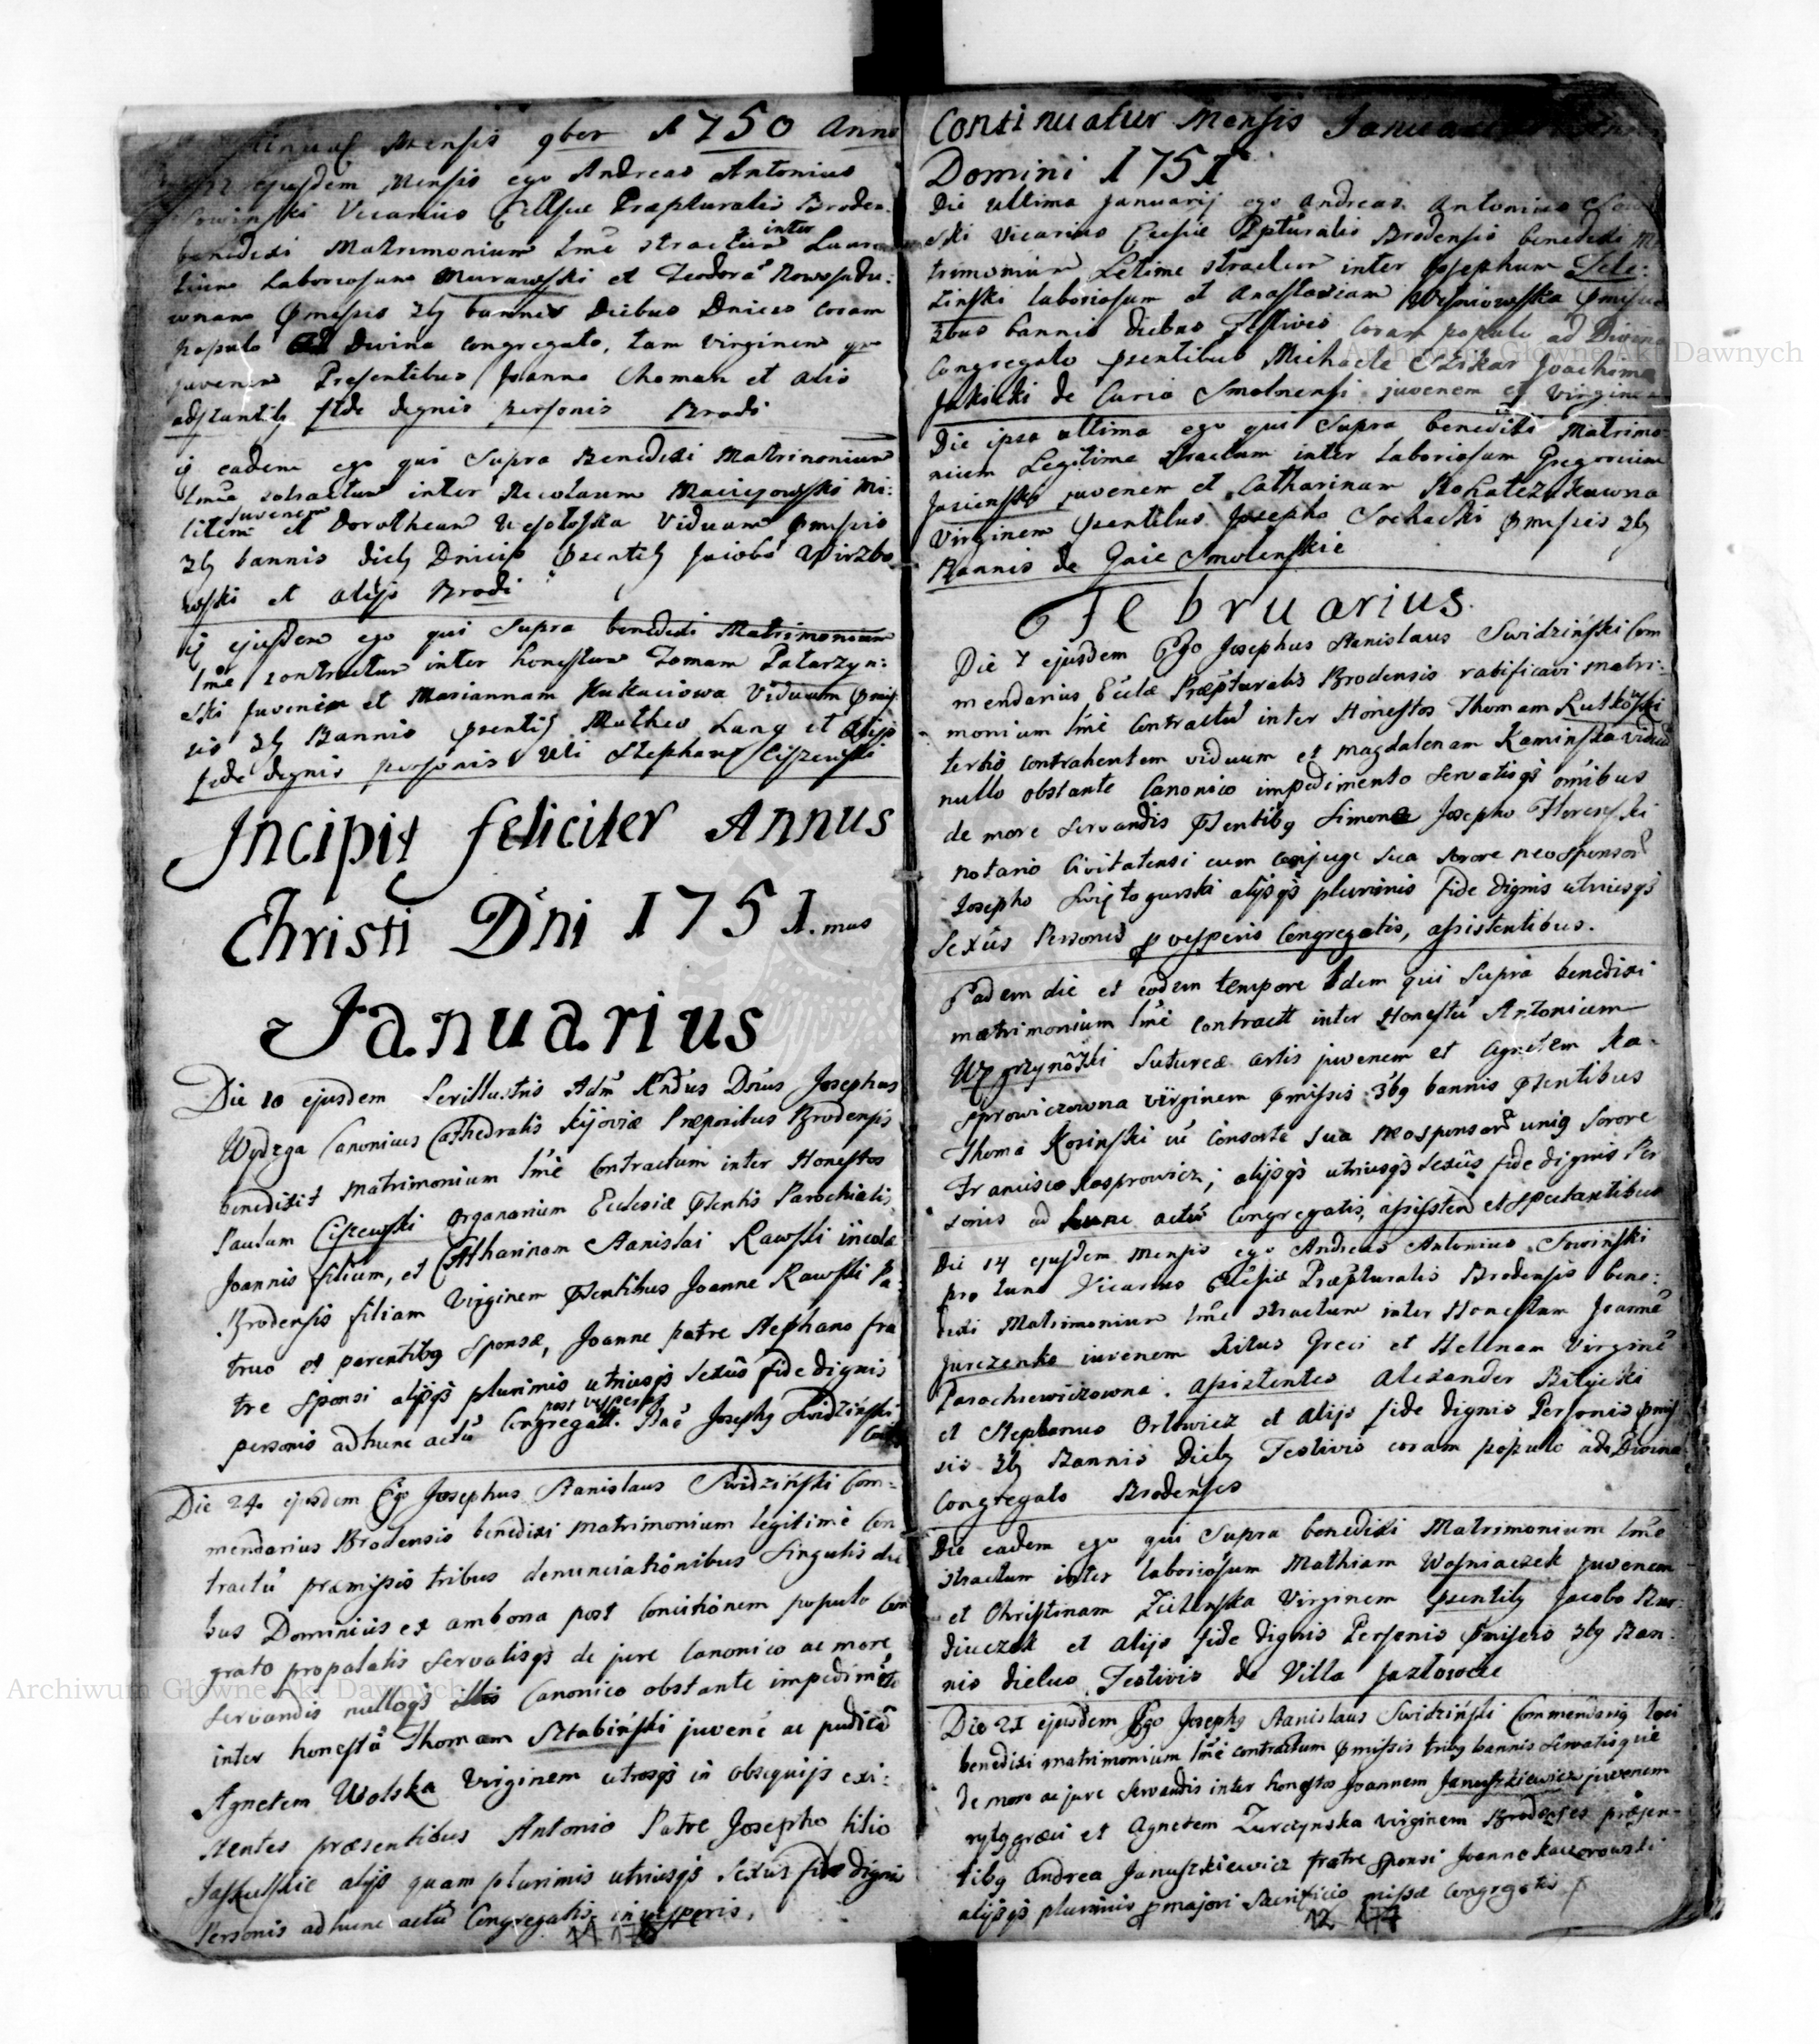 Mensis 9ber A 1750 Anno
ejusdem Mensis ego Andreas Antonius
Sowinski Vicarius Ecllsiae Praepturalis Broden.
benedixi Matrimonium lme stractum inter Lauren
tium Laboriosum Murawski et Teodora Nowosadu:
wnam pmissis 3bg bannis Diebus Dnicis coram
populo ad Divina congregato, tam virginem qu
juvenem Presentibus Joanne Choman et alio
adstantibg fide dignis personis Brodi
eadem ego qui Supra Benedixi Matrimonium
lme contractum inter Nicolaum Maciejowski Mi:
litem juvenem et Dorotheam Wesoloska Viduam pmissis
3bg bannis diebg Dnicis psentibg Jacobo Wirzbo
wski et alijs Brodi
ejusdem ego qui Supra benedixi Matrimonium
lme contractum inter honestum Tomam Patarzyn:
ski Juvenem et Mariannam Kukaciowa Viduam pmis
sis 3bg Bannis psentibg Matheo Lang et Alijs
fide dignis personis Uti Stephano Ciszewski
Incipit feliciter Annus
Christi Dni 1751.mus
Januarius
Die 10 ejusdem Perillustris Adm Rndus Dnus Josephus
Wydzga Canonicus Cathedralis Kijoviae Praepositus Brodensis
benedixit matrimonium lme Contractum inter Honestos
Paulum Ciszewski Organarium Ecclesiae psentis Parochialis
Joannis filium, et Catharinam Stanislai Rawski incolae
Brodensis filiam Virginem psentibus Joanne Rawski Pa:
truo et parentibg Sponsae, Joanne patre Stephano fra
tre Sponsi alijsqs plurimis utriusqs Sexus fide dignis
personis ad hunc actu post vesperas Congregat. Josephg Swidzinski
Die 24 ejusdem Ego Josephus Stanislaus Swidziński Com=
mendarius Brodensis benedixi matrimonium legitime Con
tractu praemissis tribus denunciationibus Singulis die
bus Dominicis ex ambona post Concionem populo Con
grato propalatis Servatisqs de jure Canonico ac more
Servandis nulloqs Canonico obstante impedimeto
inter honestu Thomam Sztabiński juvene ac pudica
Agnetem Wolska Virginem utrosqs in obsequijs exi:
stentes praesentibus Antonio Patre Josepho filio
Jaskulskie alijs quam plurimis utriusqs Sexus fide dignis
Personis ad hunc actu Congregatis in vesperis.
Continuatur Mensis Januarius
Domini 1751
Die Ultima Januarij ego Andreas Antonius Sowi
ski Vicarius Ecclsiae Ppturalis Brodensis benedixi Ma
trimonium Letime stractum inter Josephum Tele:
zinski laboriosum et Anastasiam Wisniowska pmissis
3bus bannis diebus Festivis coram populo ad Divina
Congregato psentibus Michaele Joachimo
de Curia Smolnensi juvenem et Virginem
Die ipsa ultima ego qui Supra benedixi Matrimo:
nium Legitime stractum inter laboriosum Gregorium
Jasienski juvenem et Catharinam
Virginem psentibus Josepho Sochacki pmissis 3bg
Bannis de Gaie Smolenskie
Februarius
Die 7 ejusdem Ego Josephus Stanislaus Swidziński Com
mendarius Eccle Praepturalis Brodensis ratificavi matri:
monium lme Contractu inter Honestos Thomam Rutkowski
tertio contrahentem viduum et Magdalenam Kaminska vidua
nullo obstante Canonico impedimento Servatisqs omibus
de more Servandis psentibg Simone Josepho
notario Civitatensi cum Conjuge Sua Sorore neosponsor
Josepho alijsqs plurimis fide dignis utriusqs
Sexus Personis p vesperis Congregatis, assistentibus.
Eadem die et eodem tempore Idem qui Supra benedixi
matrimonium lme contractu inter Honestu Antonium
Sutureae artis juvenem et Agnetem Ka=
sprowiczowna virginem pmissis 3bg bannis psentibus
Thoma Kosinski Consorte sua Neosponsor unig Sorore
Francisco Kasprowicz, alijsqs utriusqs Sexus fide dignis Per
sonis ad hunc actu Congregatis, assisten et spectantibus
Die 14 ejusdem Mensis ego Andreas Antonius Sowiński
pro tunc Vicarius Ecclesiae Praepturalis Brodensis bene:
dixi Matrimonium lme stractum inter Honestum Joanne
Jurczenko iuvenem Ritus Greci et Hellnam Virgine
Parachiewiczowna. Assistentes Alexander Bilycki
et Stephanus Orlowicz et alijs fide dignis Personis pmis
sis 3bg Bannis Diebg Festivis coram populo ad Divina
Congregato Brodensis
Die eadem ego qui Supra benedixi Matrimonium lme
stractum inter laboriosum Mathiam Wosniaczek juvenem
et Christinam Zielinska Virginem psentibg Jacobo Bur:
dieczek et alijs fide dignis Personis pmissis 3bg Ban:
nis diebus Festivis de Villa Jazlowcie
Die 21 ejusdem Ego Josephg Stanislaus Swidziński Commendarig loci
benedixi matrimonium lme contractum pmissis tribg bannis Servatisque
de more ac jure Servandis inter honestos Joannem Januszkiewicz juvenem
rytg graeci et Agnetem Zurczynska virginem Brodenses praesen=
tibg Andrea Januszkiewicz fratre Sponsi Joanne Kaczorowski
alijsqs plurimis p majori Sacrificio missae Congregatis
12 177
Archiwum Główne Akt Dawnych
Archiwum Główne Akt Dawnych